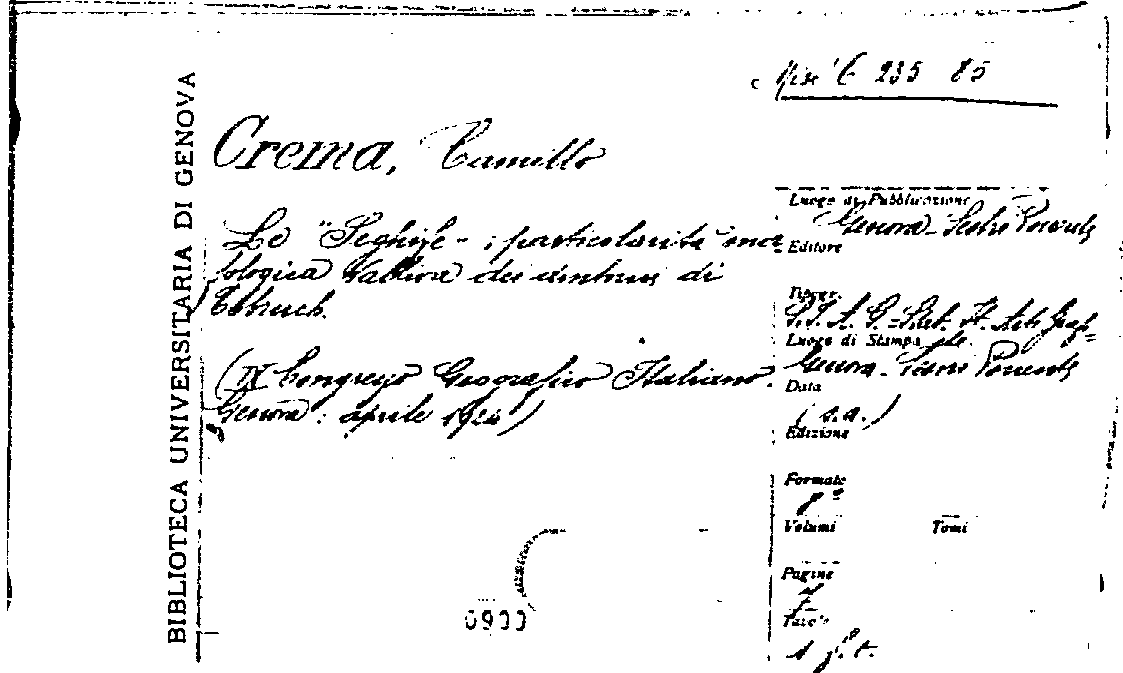 BIBLIOTECA UNIVERSITARIA DI GENOVA
Misc 6 235 85
Crema, Camillo
Le "Seghife" - : particolarità mor
fologica valliva dei dintorni di
(IX Congresso Geografico Italiano.
Genova: aprile 1924)
Luogo di Pubblicazione
Genova - Sestri Ponente
Editore
Tipogr.
S.I.A.G. - Stab. It. Arti Graf-
Luogo di Stampa
Genova - Sestri Ponente
Data
(s.a.)
Edizione
Formato
8°
Volumi Tomi
Pagine
7
Tavole
1 f.t.
0900